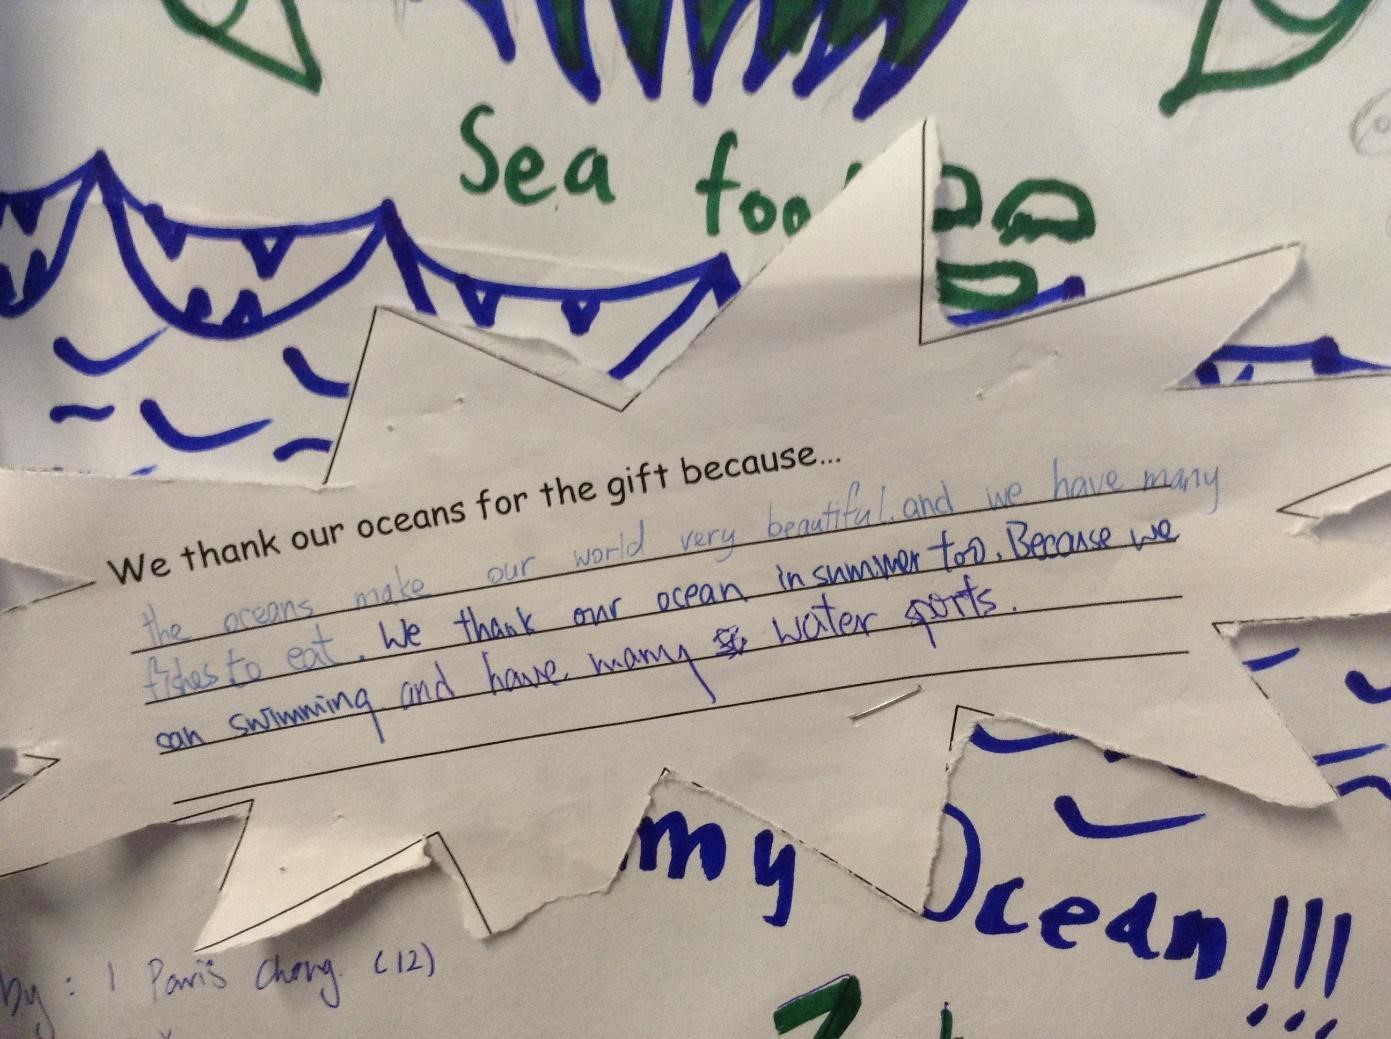 Sea foo
We thank our oceans for the gift because...
the oceans make our world very beautiful.and we have many
fishes to eat. We thank our ocean in summer too. Because we
can swimming and have many water sports.
my Ocean!!!
by: 1 Paris Chong (12)